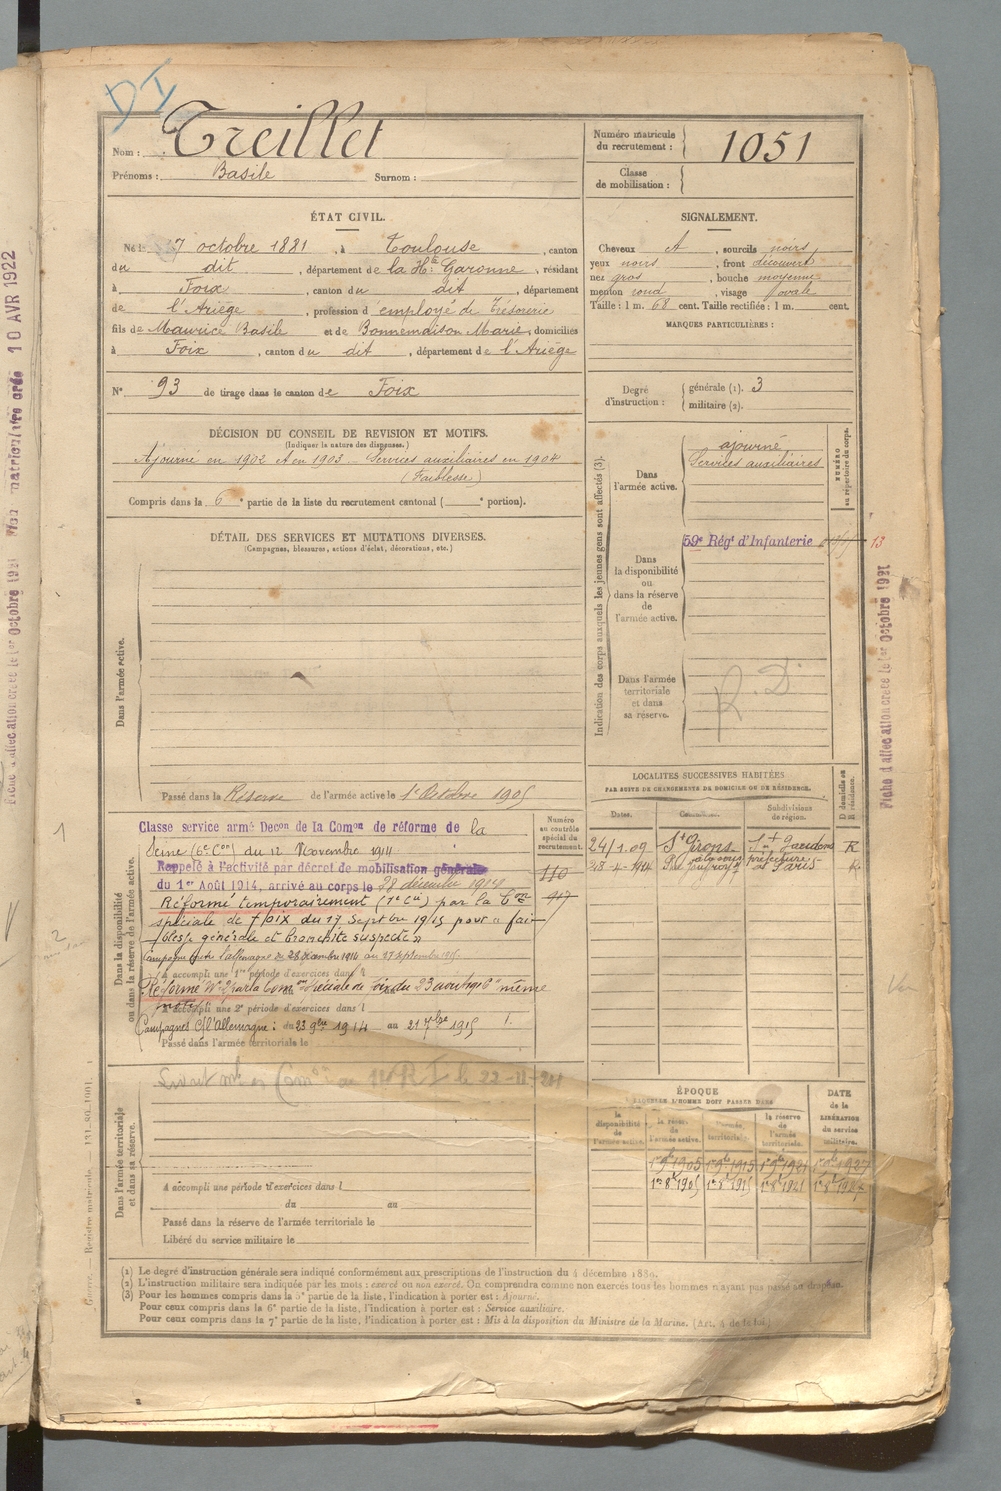 DI
Nom : Treillet
Prénoms : Basile Surnom :
Numéro matricule du recrutement : 1051
Classe de mobilisation :
ÉTAT CIVIL.
Né le 7 octobre 1881, à Toulouse, canton
du dit, département de la Hte Garonne, résidant
à Foix, canton du dit, département
de l'Ariège, profession d'employé de Trésorerie
fils de Maurice Basile et de Bonnemaison Marie, domiciliés
à Foix, canton du dit, département de l'Ariège
N° 93 de tirage dans le canton de Foix
SIGNALEMENT.
Cheveux A, sourcils noirs
yeux noirs, front découvert
nez gros, bouche moyenne
menton rond, visage ovale
Taille : 1 m. 68 cent. Taille rectifiée : 1 m. cent.
MARQUES PARTICULIÈRES :
Degré d'instruction : générale (1). 3
militaire (2).
DÉCISION DU CONSEIL DE REVISION ET MOTIFS.
(Indiquer la nature des dispenses.)
Ajourné en 1902 et en 1903 – Services auxiliaires en 1904
(Faiblesse)
Compris dans la 6e partie de la liste du recrutement cantonal (e portion).
DÉTAIL DES SERVICES ET MUTATIONS DIVERSES.
(Campagnes, blessures, actions d'éclat, décorations, etc.)
Dans l'armée active.
Passé dans la Réserve de l'armée active le 1er Octobre 1905
Indication des corps auxquels les jeunes gens sont affectés (3).
NUMÉRO au répertoire du corps.
Dans l'armée active.
ajourné
Services auxiliaires
59e Régt d'Infanterie 13
Dans la disponibilité ou dans la réserve de l'armée active.
Dans l'armée territoriale et dans sa réserve.
R. D
Dans la disponibilité ou dans la réserve de l'armée active.
Numéro au contrôle spécial du recrutement.
Classe service armé Decon de la Comon de réforme de la
Seine (6e Con) du 12 Novembre 1914
Rappelé à l'activité par décret de mobilisation générale
du 1er Août 1914, arrivé au corps le 28 décembre 1914
110
Réformé temporairement (1e Cie) par la Con
spéciale de Foix du 17 Septbre 1915 pour « fai-
blesse générale et bronchite suspecte »
A accompli une 1re période d'exercices dans l
Réformé N° 2 par la Comon spéciale de Foix du 23 août 1916 "même
motif
A accompli une 2e période d'exercices dans l
Campagnes C/ l'Allemagne : du 23 9bre 1914 au 21 7bre 1915
Passé dans l'armée territoriale le
LOCALITÉS SUCCESSIVES HABITÉES
PAR SUITE DE CHANGEMENTS DE DOMICILE OU DE RÉSIDENCE.
Dates. Communes. Subdivisions de région. D domicile ou R résidence.
24/1.09 St Girons St Gaudens R
28-4-1914 Paris R
Dans l'armée territoriale et dans sa réserve.
A accompli une période d'exercices dans l
du au
Passé dans la réserve de l'armée territoriale le
Libéré du service militaire le
ÉPOQUE
À LAQUELLE L'HOMME DOIT PASSER DANS
DATE de la LIBÉRATION du service militaire.
la disponibilité de l'armée active. la réserve de l'armée active. l'armée territoriale. la réserve de l'armée territoriale.
1er 9bre 1905 1er 9bre 1915 1er 9bre 1921 1er 9bre 1927
1er 8bre 1905 1er 8bre 1915 1er 8bre 1921 1er 8bre 1927
(1) Le degré d'instruction générale sera indiqué conformément aux prescriptions de l'instruction du 4 décembre 1889.
(2) L'instruction militaire sera indiquée par les mots : exercé ou non exercé. On comprendra comme non exercés tous les hommes n'ayant pas passé au drapeau.
(3) Pour les hommes compris dans la 5e partie de la liste, l'indication à porter est : Ajourné.
Pour ceux compris dans la 6e partie de la liste, l'indication à porter est : Service auxiliaire.
Pour ceux compris dans la 7e partie de la liste, l'indication à porter est : Mis à la disposition du Ministre de la Marine. (Art. 4 de la loi.)
10 AVR 1922
Fiche d'affectation créée le 1er Octobre 1921